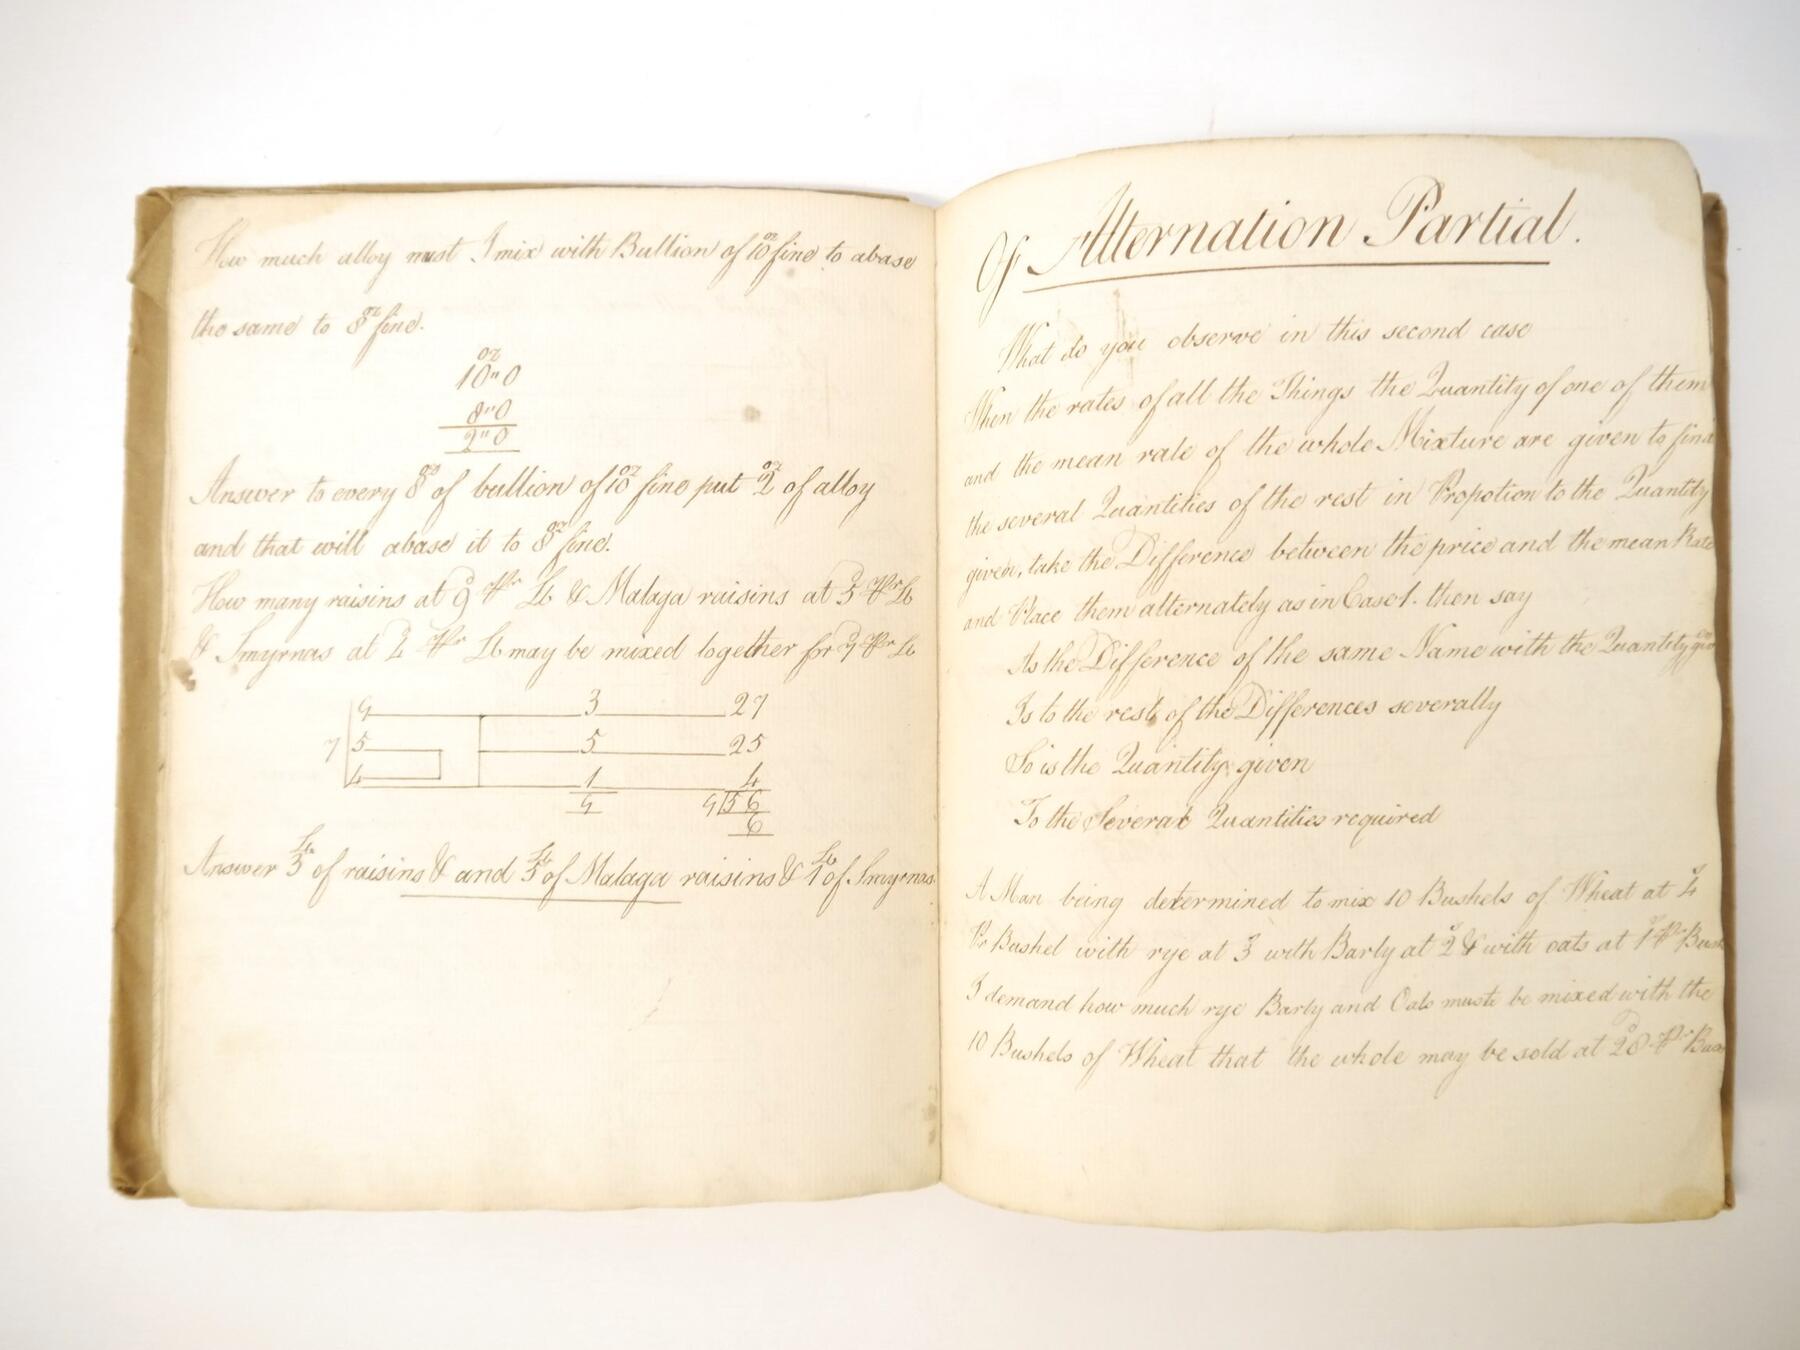 How much alloy must I mix with Bullion of 10 oz fine to abase
the same to 8 oz fine.
oz
10"0
8"0
2"0
Answer to every 8 oz of bullion of 10 oz fine put 2 oz of alloy
and that will abase it to 8 oz fine.
How many raisins at 9 d Pr lb & Malaga raisins at 5 d Pr lb
& Smyrnas at 4 d Pr lb may be mixed together for 7 d Pr lb
9 3 27
7 5 5 25
4 1 4
9 9 56
6
Answer 3 lb of raisins & and 5 lb of Malaga raisins & 1 lb of Smyrnas
Of Alternation Partial.
What do you observe in this second case
When the rates of all the Things the Quantity of one of them
and the mean rate of the whole Mixture are given to find
the several Quantities of the rest in Propotion to the Quantity
given, take the Difference between the price and the mean Rate
and Place them alternately as in Case 1. then say
As the Difference of the same Name with the Quantity
Is to the rest of the Differences severally
So is the Quantity given
To the Several Quantities required
A Man being determined to mix 10 Bushels of Wheat at 4 s
Pr Bushel with rye at 3 s with Barly at 2 s & with oats at 1 s Pr Bush
I demand how much rye Barly and Oats must be mixed with the
10 Bushels of Wheat that the whole may be sold at 28 d Pr Bus